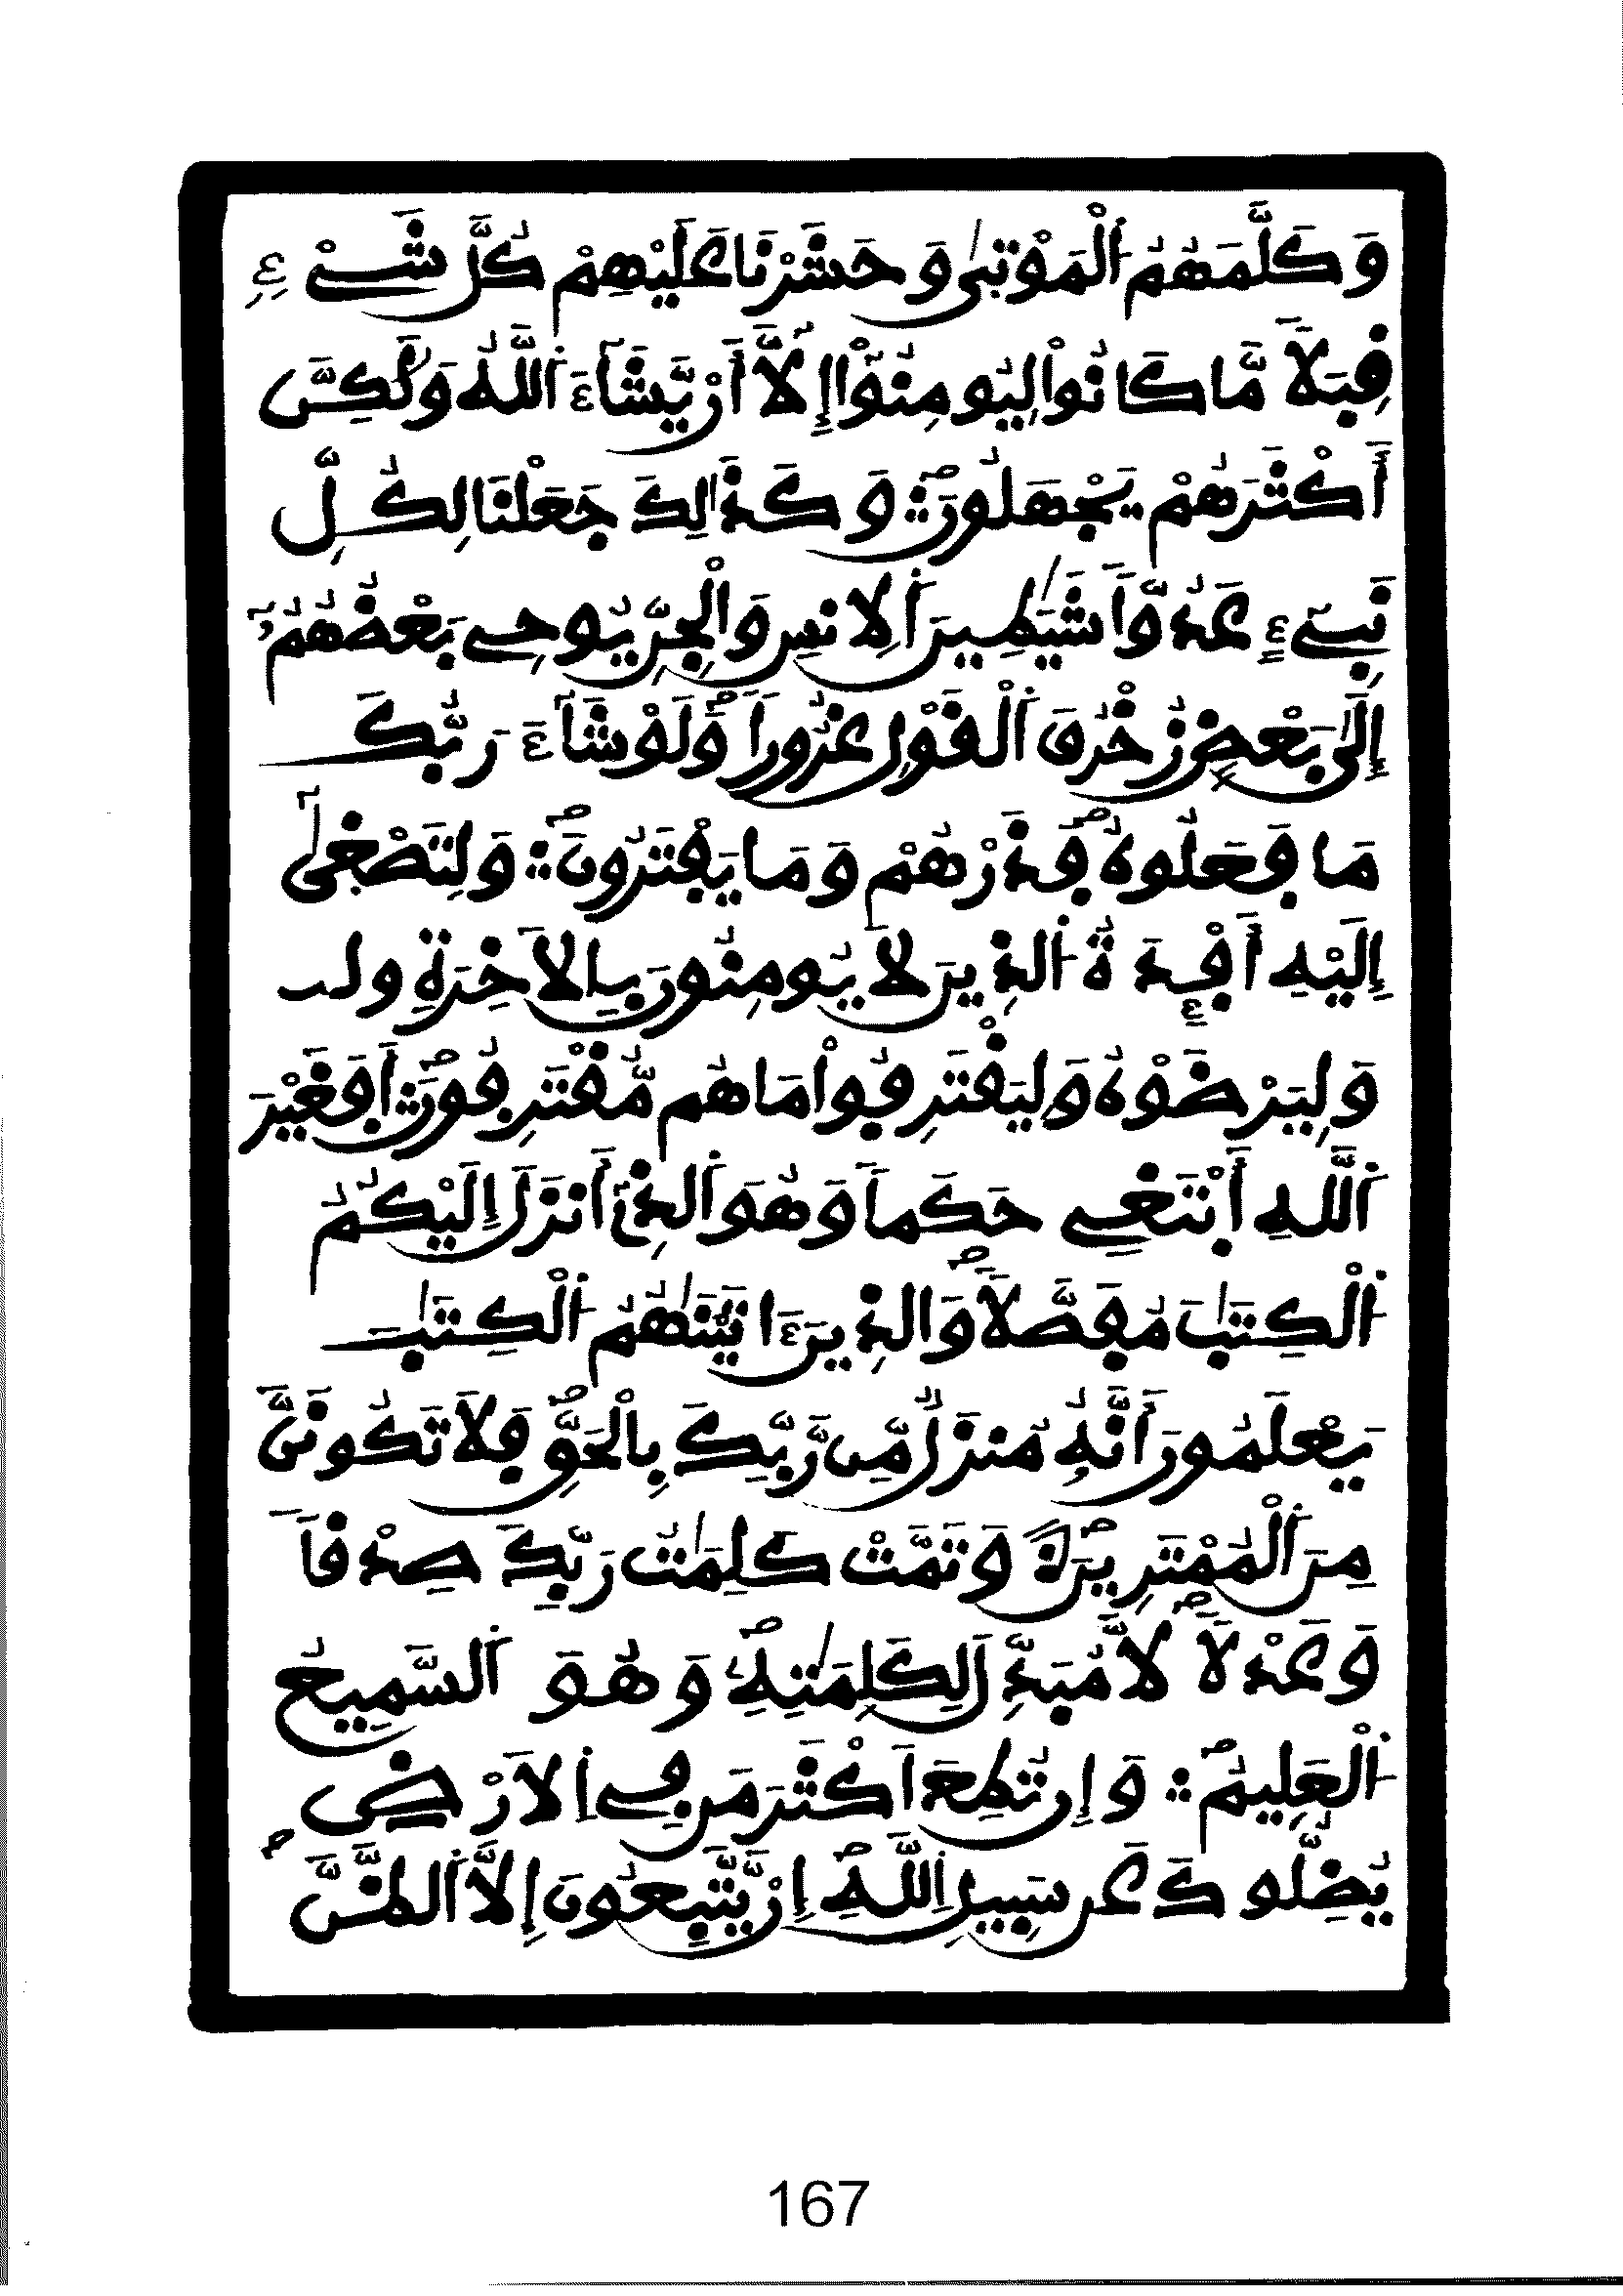 وَكَلَّمَهُمُ اُ۬لْمَوْتَىٰ وَحَشَرْنَا عَلَيْهِمْ كُلَّ شَےْءٖ
قِبَلاٗ مَّا كَانُواْ لِيُومِنُوٓاْ إِلَّآ أَنْ يَّشَآءَ اَ۬للَّهُ وَلَٰكِنَّ
أَكْثَرَهُمْ يَجْهَلُونَۖ وَكَذَٰلِكَ جَعَلْنَا لِكُلِّ
نَبِےٓءٍ عَدُوّاٗ شَيَٰطِينَ اَ۬لِانسِ وَالْجِنِّ يُوحِے بَعْضُهُمُۥٓ
إِلَىٰ بَعْضٖ زُخْرُفَ اَ۬لْقَوْلِ غُرُوراٗۖ وَلَوْ شَآءَ رَبُّكَ
مَا فَعَلُوهُۖ فَذَرْهُمْ وَمَا يَفْتَرُونَۖ وَلِتَصْغَىٰٓ
إِلَيْهِ أَفْـِٕدَةُ اُ۬لذِينَ لَا يُومِنُونَ بِالَاخِرَةِ ولـ
وَلِيَرْضَوْهُ وَلِيَقْتَرِفُواْ مَا هُم مُّقْتَرِفُونَۖ أَفَغَيْرَ
اَ۬للَّهِ أَبْتَغِے حَكَماٗ وَهُوَ اَ۬لذِےٓ أَنزَلَ إِلَيْكُمُ
اُ۬لْكِتَٰبَ مُفَصَّلاٗۖ وَالذِينَ ءَاتَيْنَٰهُمُ اُ۬لْكِتَٰبَ
يَعْلَمُونَ أَنَّهُۥ مُنزَلٞ مِّن رَّبِّكَ بِالْحَقِّۖ فَلَا تَكُونَنَّ
مِنَ اَ۬لْمُمْتَرِينَۖ وَتَمَّتْ كَلِمَٰتُ رَبِّكَ صِدْقاٗ
وَعَدْلاٗۖ لَّا مُبَدِّلَ لِكَلِمَٰتِهِۦۖ وَهُوَ اَ۬لسَّمِيعُ
اُ۬لْعَلِيمُۖ وَإِن تُطِعَ اَكْثَرَ مَن فِے اِ۬لَارْضِ
يُضِلُّوكَ عَن سَبِيلِ اِ۬للَّهِۖ إِنْ يَّتَّبِعُونَ إِلَّا اَ۬لظَّنَّۖ
167